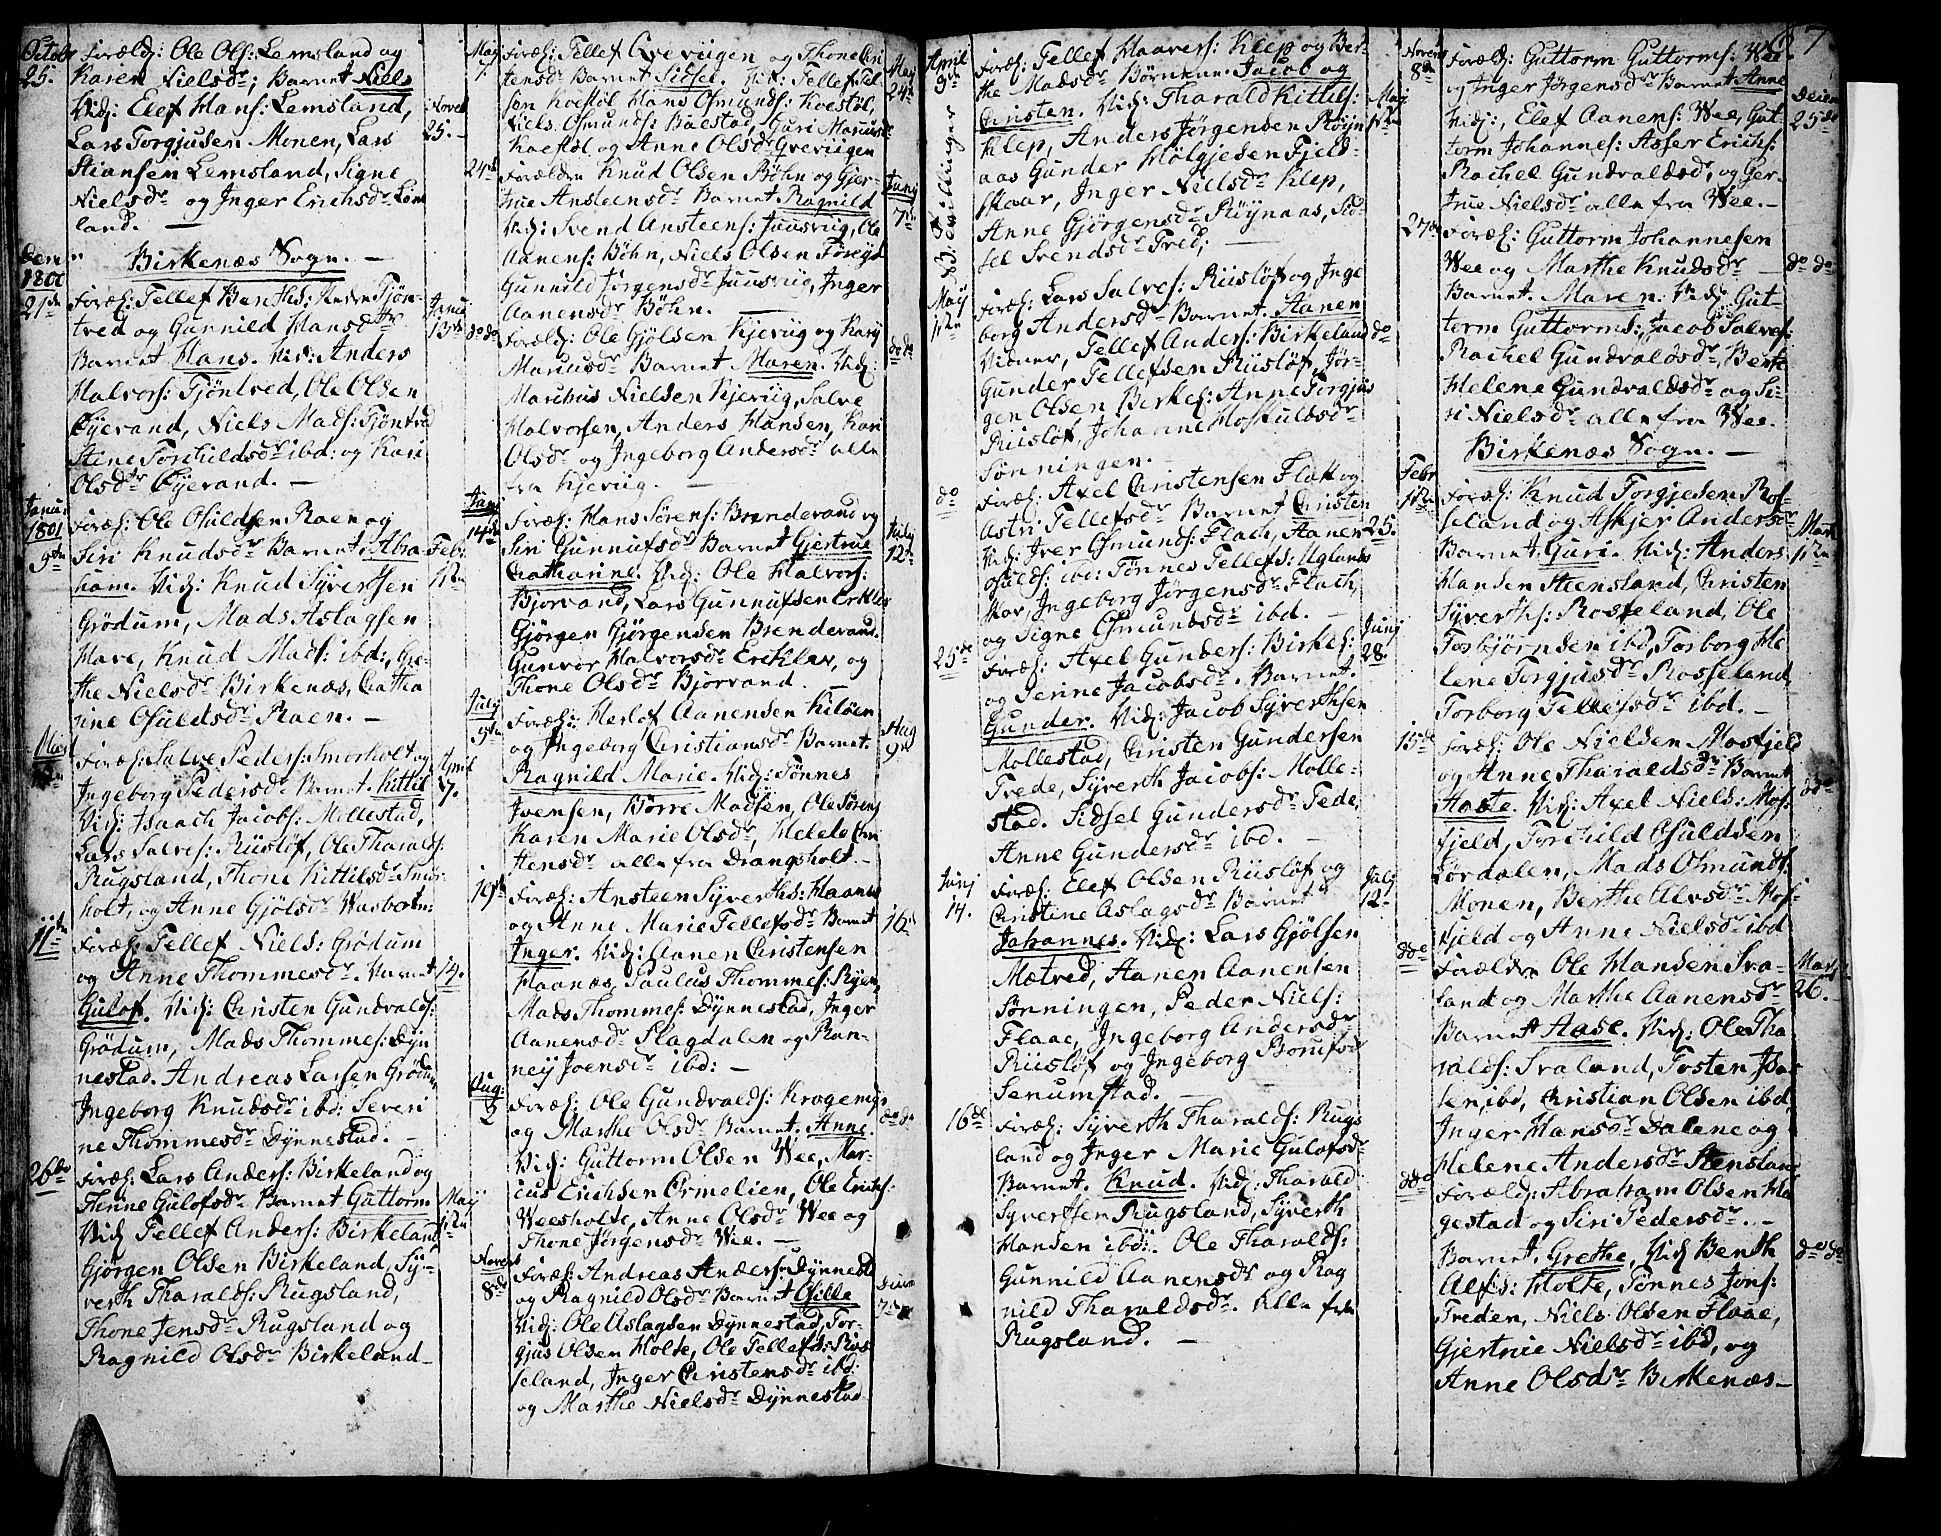 Octobr
25.
Foræld: Ole Ols: Lemsland og
Karen Nielsdr; Barnet Niels
Vid: Elef Hans: Lemsland,
Lars Torgjusen Monen, Lars
Stiansen Lemsland, Signe
Nielsdr og Inger Erichsdr Lem
land. —
Novbr
25. —
Birkenæs Sogn. —
1800
21de
Foræl: Tellef Benths: Tjön-
tred og Gunnild Hansdtr
Barnet Hans. Vid: Anders
Halvors: Tjöntved, Ole Olsen
Øyevand, Niels Mads: Tjöntved
Stine Torkildsdr ibd: og Kari
Olsdr Øyevand. —
Janu
13de
Januar
1801
9de
Foræl: Ole Osuldsen Raen og
Siri Knudsdr Barnet. Abra
ham. Vid: Knud Syvertsen
Grödum, Mads Aslagsen
Have, Knud Mads: ibd:, Gre-
the Nielsdr Birkenæs, Catha
rine Osuldsdr Raen. —
Febr
Mart
Foræl: Salve Peders: Smorholt og
Ingeborg Pedersdr Barnet. Kittil
Vid: Isaach Jacobs: Mollestad,
Lars Salves: Riislöf, Ole Tharalds:
Rugsland, Thone Kittilsdr Smor-
holt, og Anne Gjölsdr Wasbotn:
April
7.
11te
Foræl: Tellef Niels: Grödum
og Anne Thommesdr. Barnet
Gulof. Vid: Christen Gundvalds:
Grödum, Mads Thommes: Dyn
nestad. Andreas Larsen Grödum
Ingeborg Knudsdr ibd: Severi
ne Thommesdr Dynnestad. —
14.
26de
Foræl: Lars Anders: Birkeland og
Thone Gulofsdr Barnet Guttorm
Vid Tellef Anders: Birkeland
Gjörgen Olsen Birkeland, Sy-
verth Tharalds: Rugsland,
Thone Jensdr Rugsland og
Ragnild Olsdr Birkeland —
Maij
May
7.
Foræl: Tellef Qveviigen og Thone Chri
tensdr Barnet Sidsel. Vid: Tellef Tel
sen Koestöl Hans Osmunds: Koestöl,
Niels Osmunds: Baestad, Guri Mariusdr
Koestöl og Anne Olsdr Qveviigen
May
24de
24de
Forældre Knud Olsen Böhn og Gjer-
true Ansteensdr Barnet. Ragnild
Vid: Svend Ansteens: Juusviig, Ole
Aanens: Böhn, Niels Olsen Föreijd
Gunnild Jörgensdr Juusviig, Inger
Aanensdr Böhn. —
Junij
7de
do do
Foræld: Ole Gjölsen Kjeviig og Kary
Mariusdr Barnet Maren. Vid:
Marthus Nielsen Kjeviig, Salve
Halvorsen, Anders Hansen, Kari
Olsdr og Ingeborg Andersdr alle
fra Kjeviig. —
do do
Junij
14de
Foræl: Hans Sörens: Brandevand og
Siri Gunnufsdr Barnet Gjertrue
Catharine. Vid: Ole Halvors:
Bjorvand, Lars Gunnufsen Erklev
Gjörgen Gjörgensen Brendevand.
Gunvor Halvorsdr Ereklev, og
Thone Olsdr Bjorvand. —
July
12de
July
5te
Foræl: Herlof Aanensen Kilöen
og Ingeborg Christiansdr Barnet.
Ragnild Marie. Vid: Tönnes
Ivensen, Börre Madsen, Ole Sörens
Karen Marie Olsdr, Helele Chri
stensdr alle fra Drangsholt. —
Aug
9de
19de
Foræl: Ansteen Syverths: Haanes
og Anne Marie Tellefsdr Barnet
Inger. Vid: Aanen Christensen
Haanæs, Paulus Thommes: Ryen,
Mads Thommes: Dynnestad, Inger
Aanensdr Slagdalen og Ran-
neij Joensdr ibd: —
16de
Aug:
2
Foræl: Ole Gundvalds: Krogemyr
og Marthe Olsdr Barnet. Anne.
Vid: Guttorm Olsen Wee, Mar-
cus Erichsen Ormelien, Ole Erichs:
Weesholte, Anne Olsdr Wee og
Thone Jörgensdr Wee. —
do do
Novem
8de
Foræl: Andreas Anders: Dynnest
og Ragnild Olsdr Barnet Gille
Vid: Ole Aslagsen Dynnestad, Tor-
gjus Olsen Holte, Ole Tellefs: Ris
seland, Inger Christensdr ibd:
og Marthe Nielsdr Dynnestad.
April
9de
Bevillinger
Foræl: Tellef Haavers: Klep og Ber-
the Madsdr Börnene. Jacob og
Christen. Vid: Tharald Kittils:
Klep, Anders Jörgensen Röyn
aas Gunder Hölgjesen Fjeld-
skaar, Inger Nielsdr Klep,
Anne Gjörgensdr Röynaas, Sid-
sel Svendsdr Tred; —
Maij
Maij
Foræl: Lars Salves: Riislöf og Inge
borg Andersdr Barnet. Aanen
Vidner, Tellef Anders: Birkeland
Gunder Tellefsen Riislöf, Jör-
gen Olsen Birkel: Anne Torgjus
Riislöf, Johanne Hoskuldsdr
Sönningen. —
do
do
Foræl: Axel Christensen Flak og
Astri Tellefsdr Barnet Christen
Vid: Iver Osmunds: Flach, Aanen
Osulds: ibd: Tönnes Tellefs: Uglands
kar, Ingeborg Jörgensdr Flach,
og Signe Osmundsdr ibd. —
25.
25de
Foræl: Axel Gunders: Birkel:
og Jenne Jacobsdr. Barnet.
Gunder. Vid: Jacob Syverthsen
Mollestad, Christen Gundersen
Trede, Syverth Jacobs: Molle-
stad. Sidsel Gundersdr Tede,
Anne Gundersdr ibd. —
Junij
28.
Junj
14.
Foræl: Elef Olsen Riislöf og
Christine Aslagsdr Barnet
Johannes. Vid: Lars Gjölsen
Mætved, Aanen Aanensen
Sönningen, Peder Niels:
Flaae, Ingeborg Andersdr
Riislöf og Ingeborg Borufsdr
Senumstad. —
July
12.
16de
Foræl: Syverth Tharalds: Rugs
land og Inger Marie Gulofsdr
Barnet. Knud. Vid: Tharald
Syvertsen Rugsland, Syverth
Hansen ibd:. Ole Tharalds:
Gunnild Aanensdr og Rag
nild Tharaldsdr. Alle fra
Rugsland. —
67
Novem
8de
Foræl: Guttorm Guttorms: Wee.
og Inger Jörgensdr Barnet Anne
Vid:, Elef Aanens: Wee, Gut-
torm Johannes: Asser Erichs:
Rachel Gundvaldsdr, og Ger-
true Nielsdr alle fra Wee. —
Decem
25de
27de
Foræl: Guttorm Johannesen
Wee og Marthe Knudsdr —
Barnet. Maren. Vid: Gut-
torm Guttorms:, Jacob Salves
Rachel Gundvaldsdr, Berte
Helene Gundvaldsdr og Si-
ri Nielsdr alle fra Wee.
do do
Birkenæs Sogn. —
Febr
Foræl: Knud Torgjesen Ros-
seland og Askjer Andersdr
Barnet. Guri. Vid: Anders
Hansen Steensland, Christen
Syverths: Rosseland, Ole
Torbjörnsen ibd, Torborg He
lene Torgjusdr Rosseland,
Torborg Tellefsdr ibd. —
Mart
15de
Foræl: Ole Nielsen Mosfjeld
og Anne Tharaldsdr Barnet
Aaste. Vid: Axel Niels: Mos-
fjeld, Torkild Osuldsen
Lördalen, Mads Osmunds:
Monen, Berthe Alvsdr Mos-
fjeld og Anne Nielsdr ibd
ddo
ddo
Forældre Ole Hansen Sva-
land og Marthe Aanensdr
Barnet Aase. Vid: Ole Tha-
ralds: Svaland, Tosten Isa
sen, ibd, Christian Olsen ibd,
Inger Hansdr Dalene og
Helene Andersdr Stensland
Mart
26. —
ddo
Foræld: Abraham Olsen Hæ
gestad og Siri Pedersdr. —
Barnet. Grethe. Vid Benth
Alfs: Holte, Tönnes Jons:
Treden, Niels Olsen Flaae,
Gjertrue Nielsdr ibd, og
Anne Olsdr Birkenæs —
do do